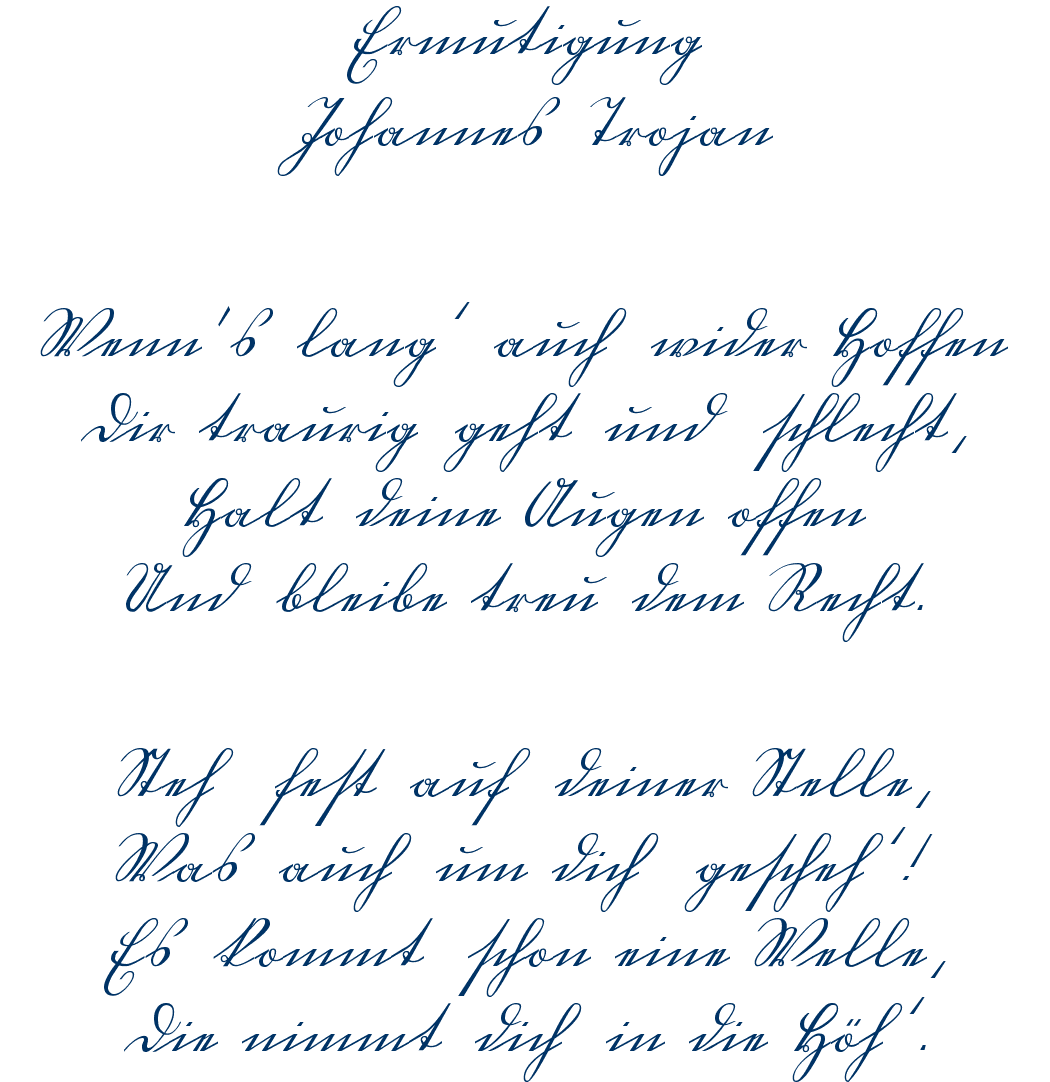 Ermutigung
Johannes Trojan
Wenn's lang' auch wider Hoffen
Dir traurig geht und schlecht,
Halt deine Augen offen
Und bleibe treu dem Recht.
Steh fest auf deiner Stelle,
Was auch um dich gescheh'!
Es kommt schon eine Welle,
Die nimmt dich in die Höh'.